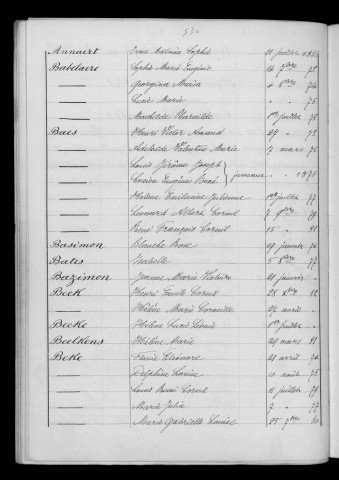 530
Annaert Irma Sophie 11 juillet 1884
Babelaire Sophie Marie Eugénie 14 7bre 73
—— Georgina Maria 4 8bre 74
—— Marie " 75
—— Mathilde 1er juillet 78
Baes Henri Victor Amand 27 " 73
—— Adelaïde Valentine Marie 7 mars 75
—— Louis Jérôme Joseph
—— Eugène René } jumeaux " 1876
—— Hélène Emilienne Julienne 1er juillet 77
—— Léonard Albert Cornil 7 79
—— René François Cornil 15 " 81
Basimon Blanche Rose 19 janvier 76
Bates Isabelle 5 8bre 77
Bazimon Jeanne Marie Victoire 21 janvier "
Beck Henri Cornil 28 82
—— Hélène Marie 27 avril "
Becke Hélène 1er juillet "
Beelkens Hélène Marie 29 mars 81
Beke Eléonore 21 avril 74
—— Delphine Louise 10 août 75
—— Louis Henri Cornil 11 juillet 79
—— Marie Julie 7 " 77
—— Marie Gabrielle Louise 25 7bre 80